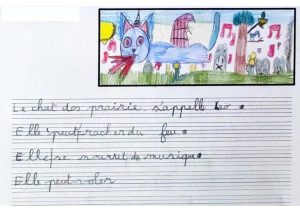 Le chat des prairie s'appelle Leo.
Elle peut cracher du feu.
Elle se nourrit de musique.
Elle peut voler